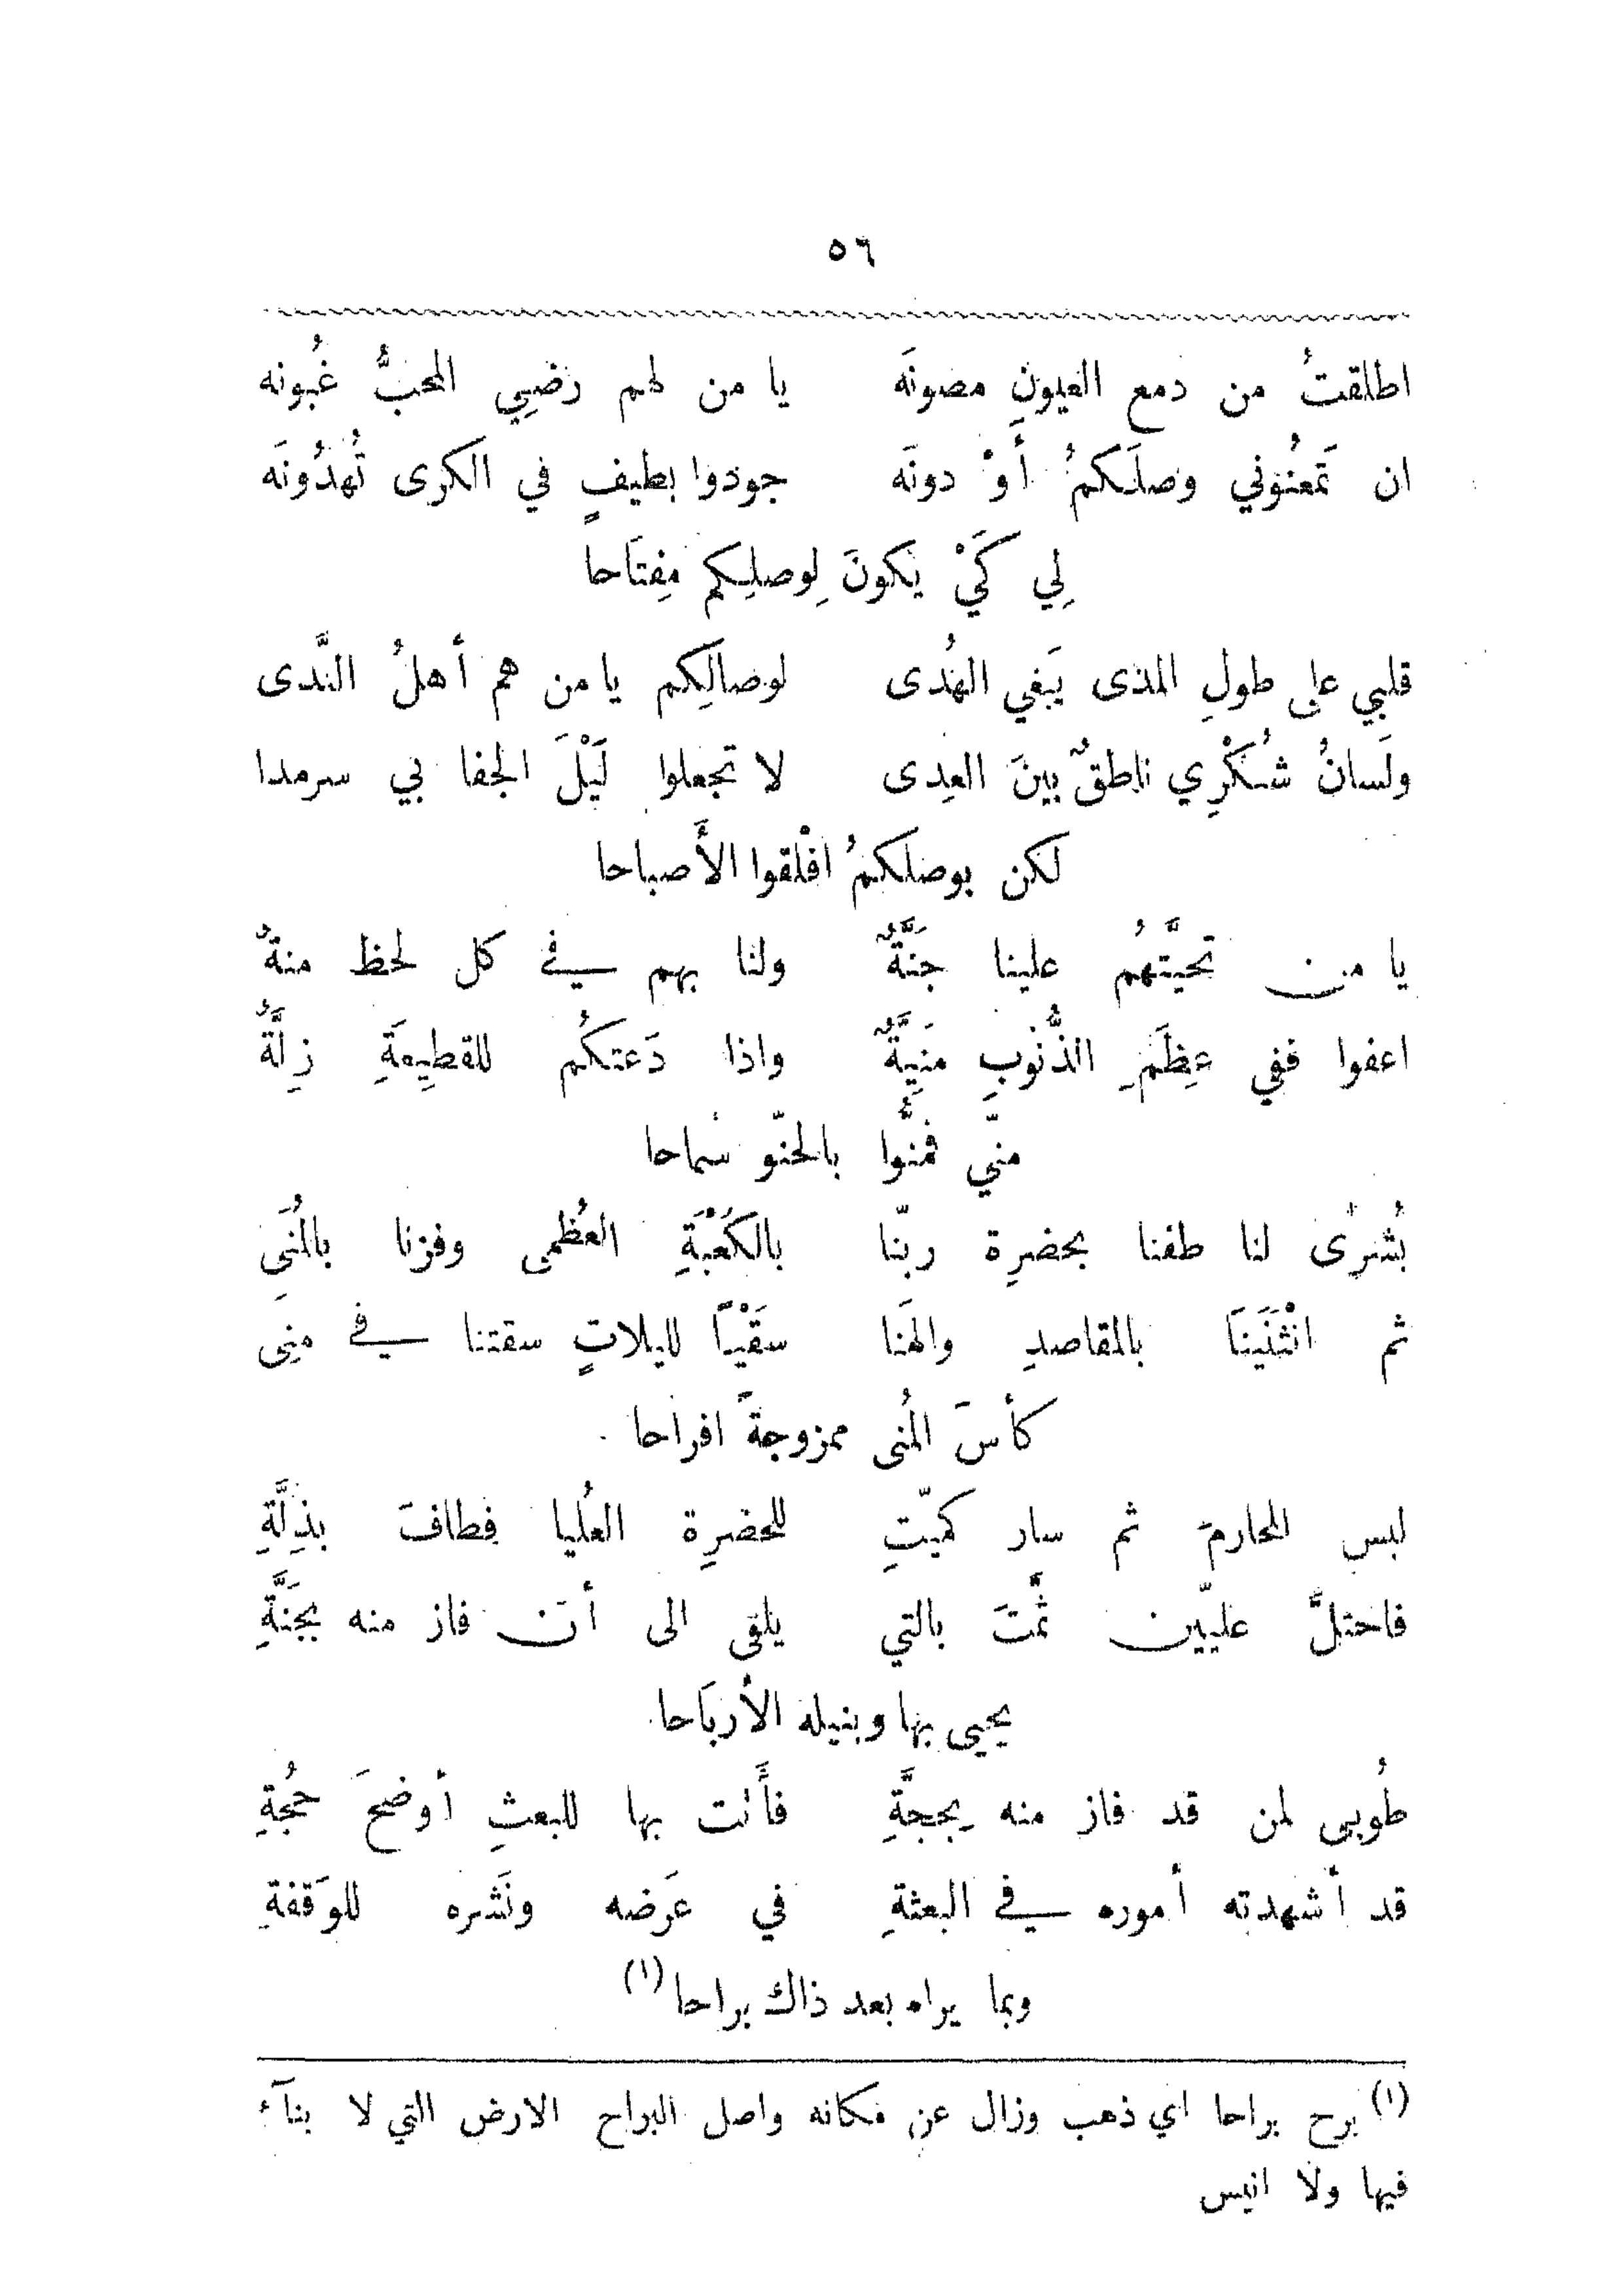 ٥٦
اطلقتُ من دمع العيونِ مصونَه يا من لهم رَضيِي المحبُّ غُبونه
ان تَمعنُوني وصلَكمُ أَوْ دونَه جودوا بطيفٍ في الكرى تُهدُونَه
لِي كَيْ يَكونَ لِوصلِكم مِفتَاحا
قلبِي على طولِ المدَى يَبغي الهُدى لوصالِكم يا من هم أهلُ النَّدى
ولَسانُ شُكْرِي ناطقٌ بينَ العِدى لا تجعلوا لَيْلَ الجفا بي سرمدا
لكن بوصلكمُ افْلقوا الأَصباحا
يا من تحيَّتهُم علينا جَنَّةٌ ولنا بهم في كل لحظ منةٌ
اعفوا ففي عِظَمِ الذُّنوبِ مَنِيَّةٌ واذا دَعتكُم للقطيِعةِ زِلَّةٌ
منّي فمنُّوا بالحنّو سماحا
بُشرىً لنا طفنا بحضرِة ربّنا بالكَعْبَةِ العُظمى وفزنا بالمُنَى
ثم انْثَنَينَا بالمقاصدِ والهَنا سقَيْاً لليلاتٍ سقتنا في مِنِى
كأسَ المُنى ممزوجةً افراحا
لبس المحارمَ ثم سار كميّتِ للحضرِة العُليا فطافَ بذِلَّةِ
فاحتلَّ عليّين ثَمَّتَ بالتي يلقى الى أن فاز منه بجَنَّةِ
يحيى بها وبنيله الأربَاحا
طُوبى لمن قد فاز منه بِججَّةِ فأَتت بها للبعثِ أوضحَ حُجةِ
قد أشهدته أموره في البعثةِ في عَرَضه ونَشره للوَقفةِ
وبما يراه بعد ذاك براحا (١)
(١) برح براحا اي ذهب وزال عن مكانه واصل البراح الارض التي لا بنآء
فيها ولا انيس